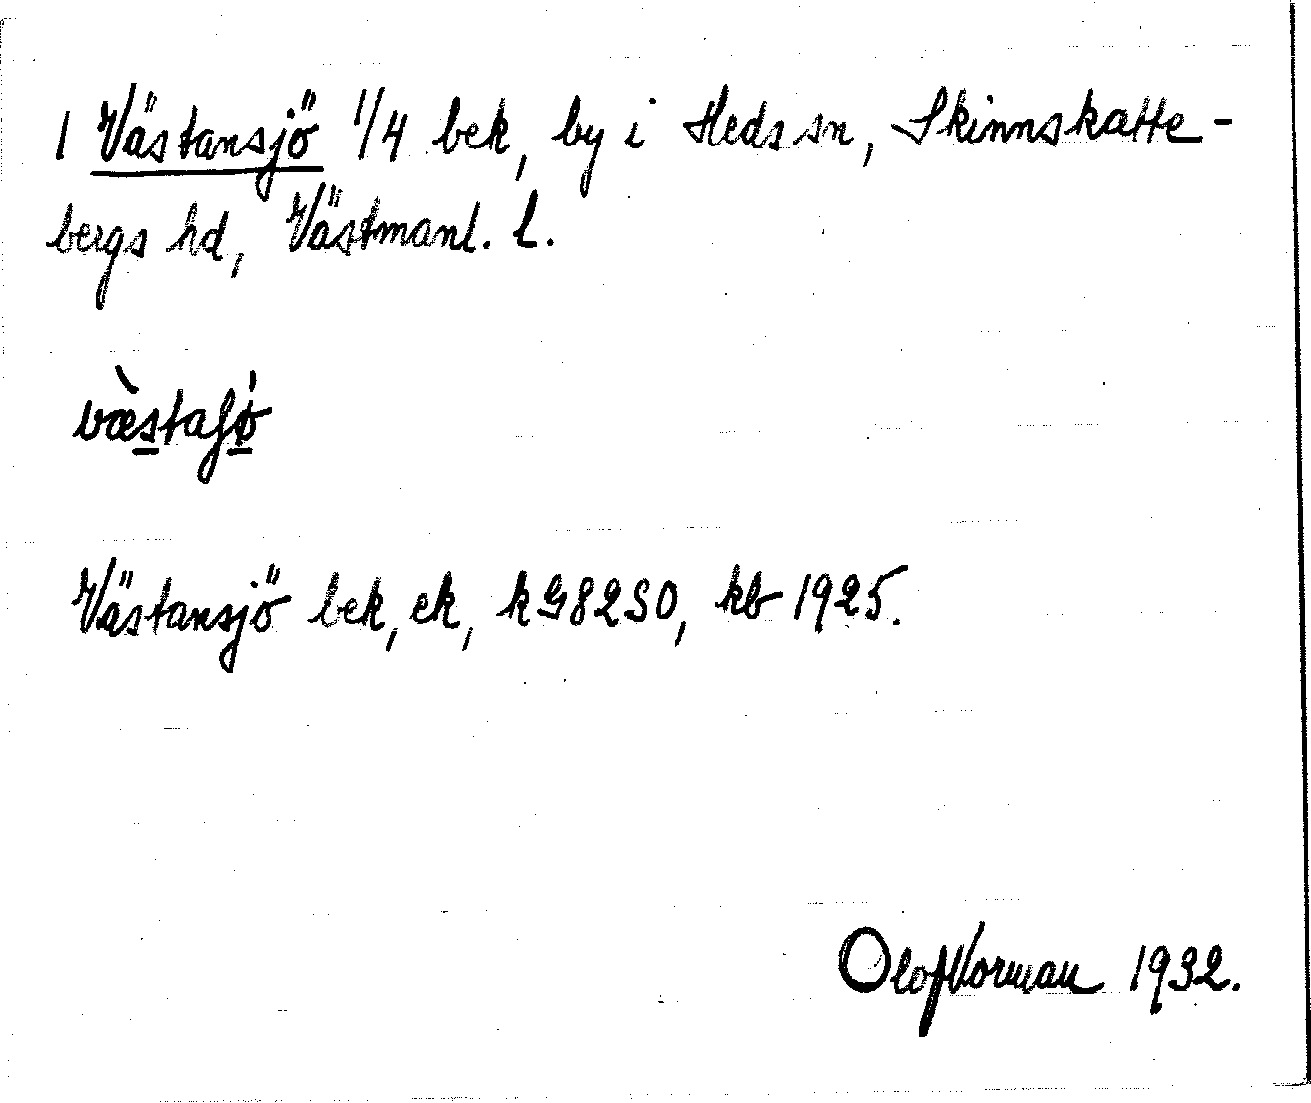 1 Västansjö 1/4 bek, by i Heds sn, Skinnskatte-
bergs hd, Västmanl. l.
Västansjö bek, ek, kG82SO, kb 1925.
Olof Norman 1932.